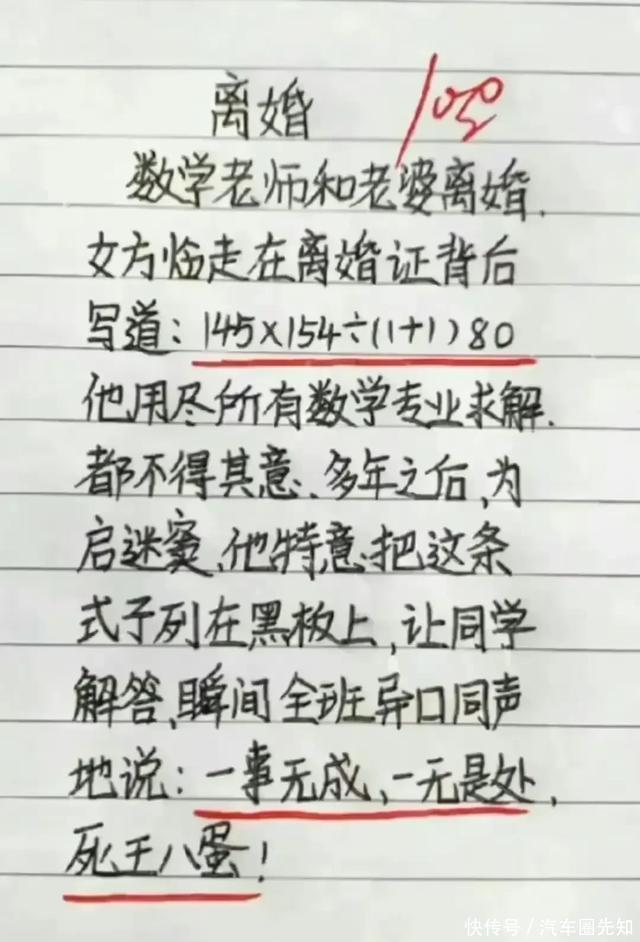 离婚
100
数学老师和老婆离婚.
女方临走在离婚证背后
写道:145×154÷(1+1)80
他用尽所有数学专业求解.
都不得其意.多年之后,为
启迷窦,他特意把这条
式子列在黑板上,让同学
解答,瞬间全班异口同声
地说:一事无成,一无是处,
死王八蛋!
快传号/汽车圈先知